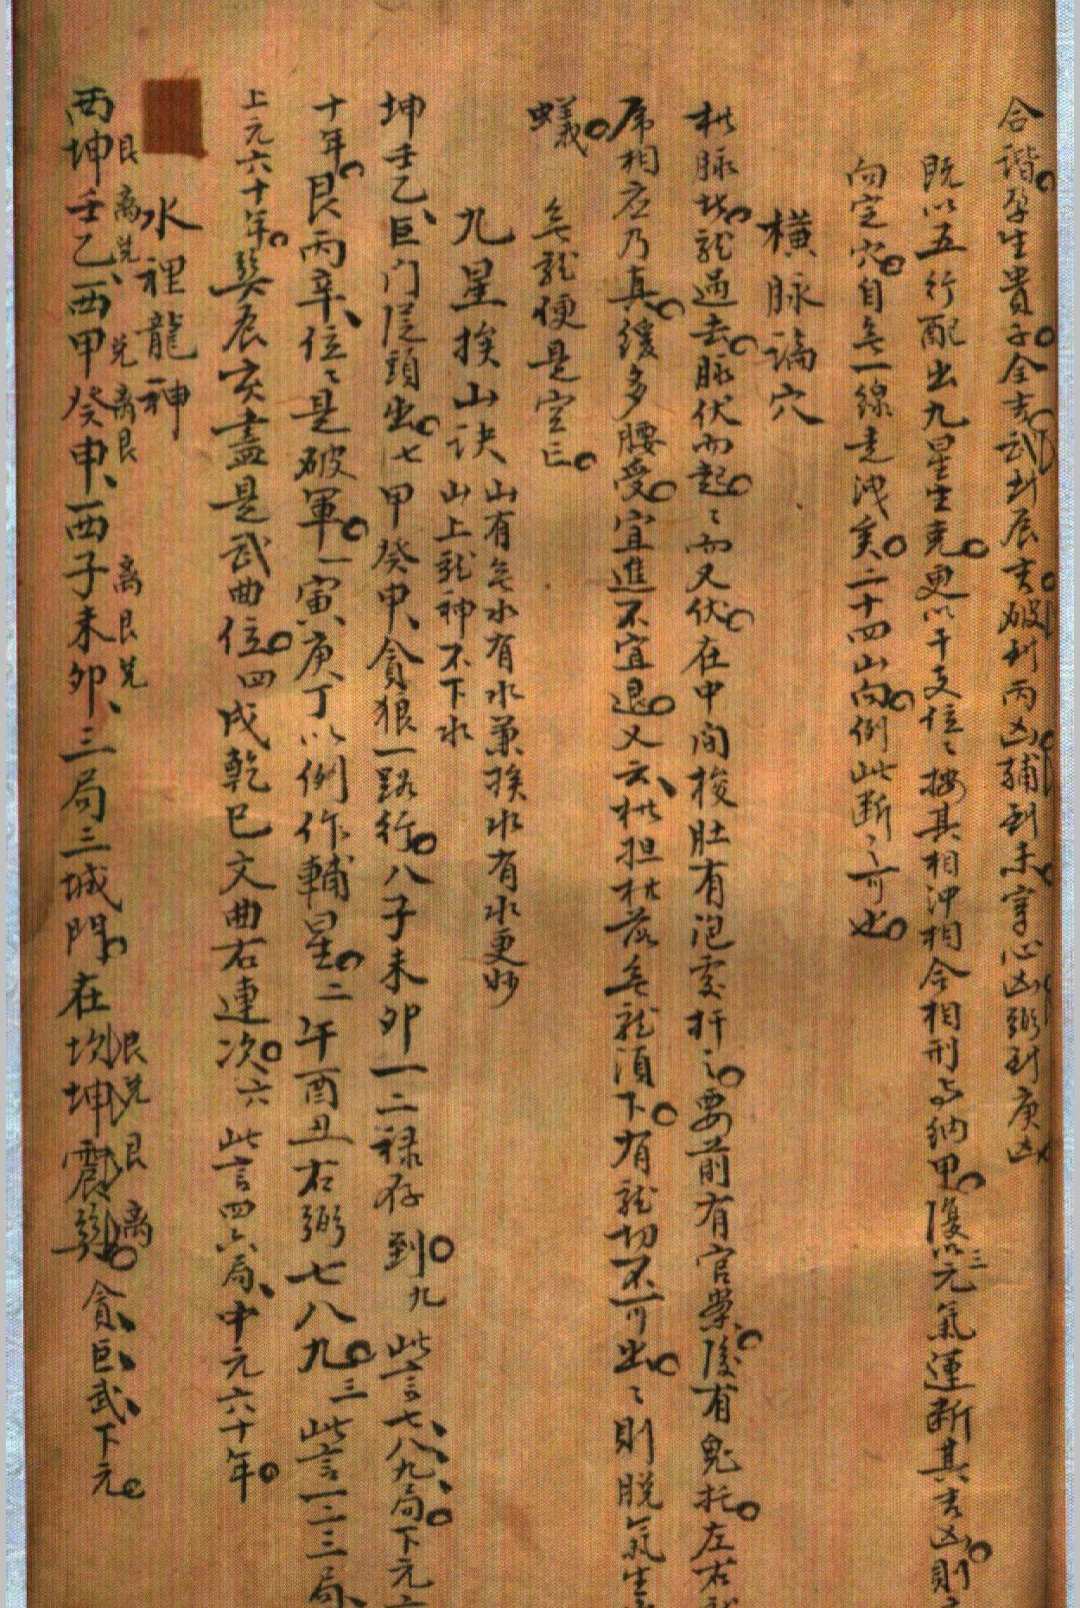 合諧孕生貴子金吉武到辰吉破到丙凶輔到未穿心凶弼到庚凶
既以五行配出九星生克更以干支位々按其相沖相合相刑與納甲復以三元氣運斷其吉凶則
向定穴自無一線走洩矣二十四山向例此斷々可也
橫脉論穴
脉找龍過去脉伏而起々而又伏在中间梭肚有泡處扦之要前有官案後有鬼托左右
席相应乃真緩多腰受宜進不宜退又云担落無龍須下有龍切不可出々則脱氣生
蟻 無龍便是空亡
九星挨山訣 山有無水有水兼挨水有水更妙 山上龍神不下水
坤壬乙巨门從頭出七甲癸申貪狼一路行八子未卯一二禄存到九 此言七八九局下元
十年艮丙辛位々是破軍一寅庚丁以例作輔星二午酉丑右弼七八九三 此言一二三局
上元六十年巽辰亥盡是武曲位四戌乾巳文曲右連次六 此言四六局中元六十年
水裡龍神
艮离兑 兑离艮 离艮兑 艮兑艮离
西坤壬乙西甲癸申西子未卯三局三城門在坎坤震巽 貪巨武下元